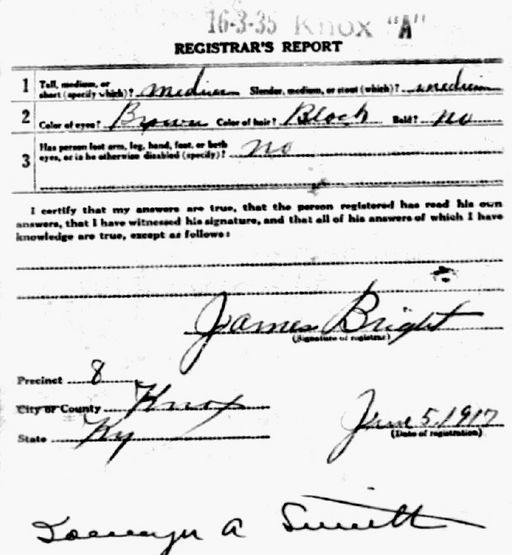 16-3-35 Knox "A"
REGISTRAR'S REPORT
1 Tall, medium, or short (specify which)? medium Slender, medium, or stout (which)? medium
2 Color of eyes? Brown Color of hair? Black Bald? no
3 Has person lost arm, leg, hand, foot, or both eyes, or is he otherwise disabled (specify)? no
I certify that my answers are true, that the person registered has read his own
answers, that I have witnessed his signature, and that all of his answers of which I have
knowledge are true, except as follows:
James Bright
(Signature of registrar)
Precinct 8
City or County Knox
State Ky
June 5, 1917
(Date of registration)
A Smith